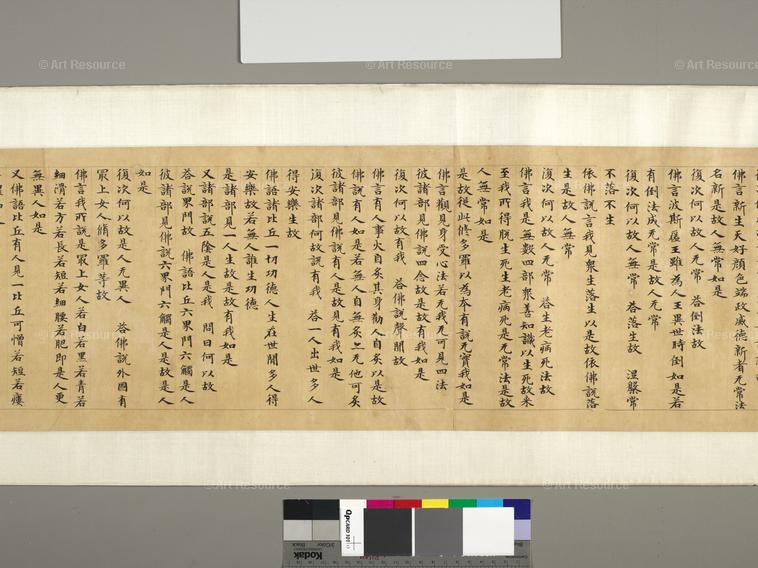 佛言新生天好顏色端政威德新者无常法
名新是故人無常如是
復次何以故人无常 答倒法故
佛言波斯匿王雖為人王異世時倒如是若
有倒法成无常是故人无常
復次何以故人無常 答落生故 涅槃常
不落不生
依佛說言我見衆生落生以是故依佛說落
生是故人無常
復次何以故人无常 答生老病死法故
佛言我是無數四部衆善知識以生死故来
至我所得脫生死生老病死是无常法是故
人無常如是
是故從此脩多羅以為本有說无實我如是
佛言觀身受心法若无我无可見四法
彼諸部見佛說四念故是故有我如是
復次何以故有我 答佛說聲聞故
佛言有人事火自矣其身勸人自矣以是故
佛說有人如是若無人自無矣亦无他可矣
彼諸部見佛說有人是故見有我如是
復次諸部何故說有我 答一人出世多人
得安樂生故
佛語諸比丘一切功德人生在世間多人得
安樂故若無人誰生功德
是諸部見一人生故是故有我如是
又諸部說五陰是人是我 問曰何以故
答說界門故 佛語比丘六界門六觸是人
彼諸部見佛說六界門六觸是人是故是人
如是
復次何以故是人无異人 答佛說外國有
冣上女人脩多羅等故
佛言我所說是冣上女人若白若黑若青若
細滑若方若長若短若細腰若肥即是人更
無異人如是
又佛語比丘有人見一比丘可憎若短若瘦
© Art Resource
© Art Resource
© Art Resource
© Art Resource
© Art Resource
© Art Resource
QPCARD 101
Kodak
Black
3/Color